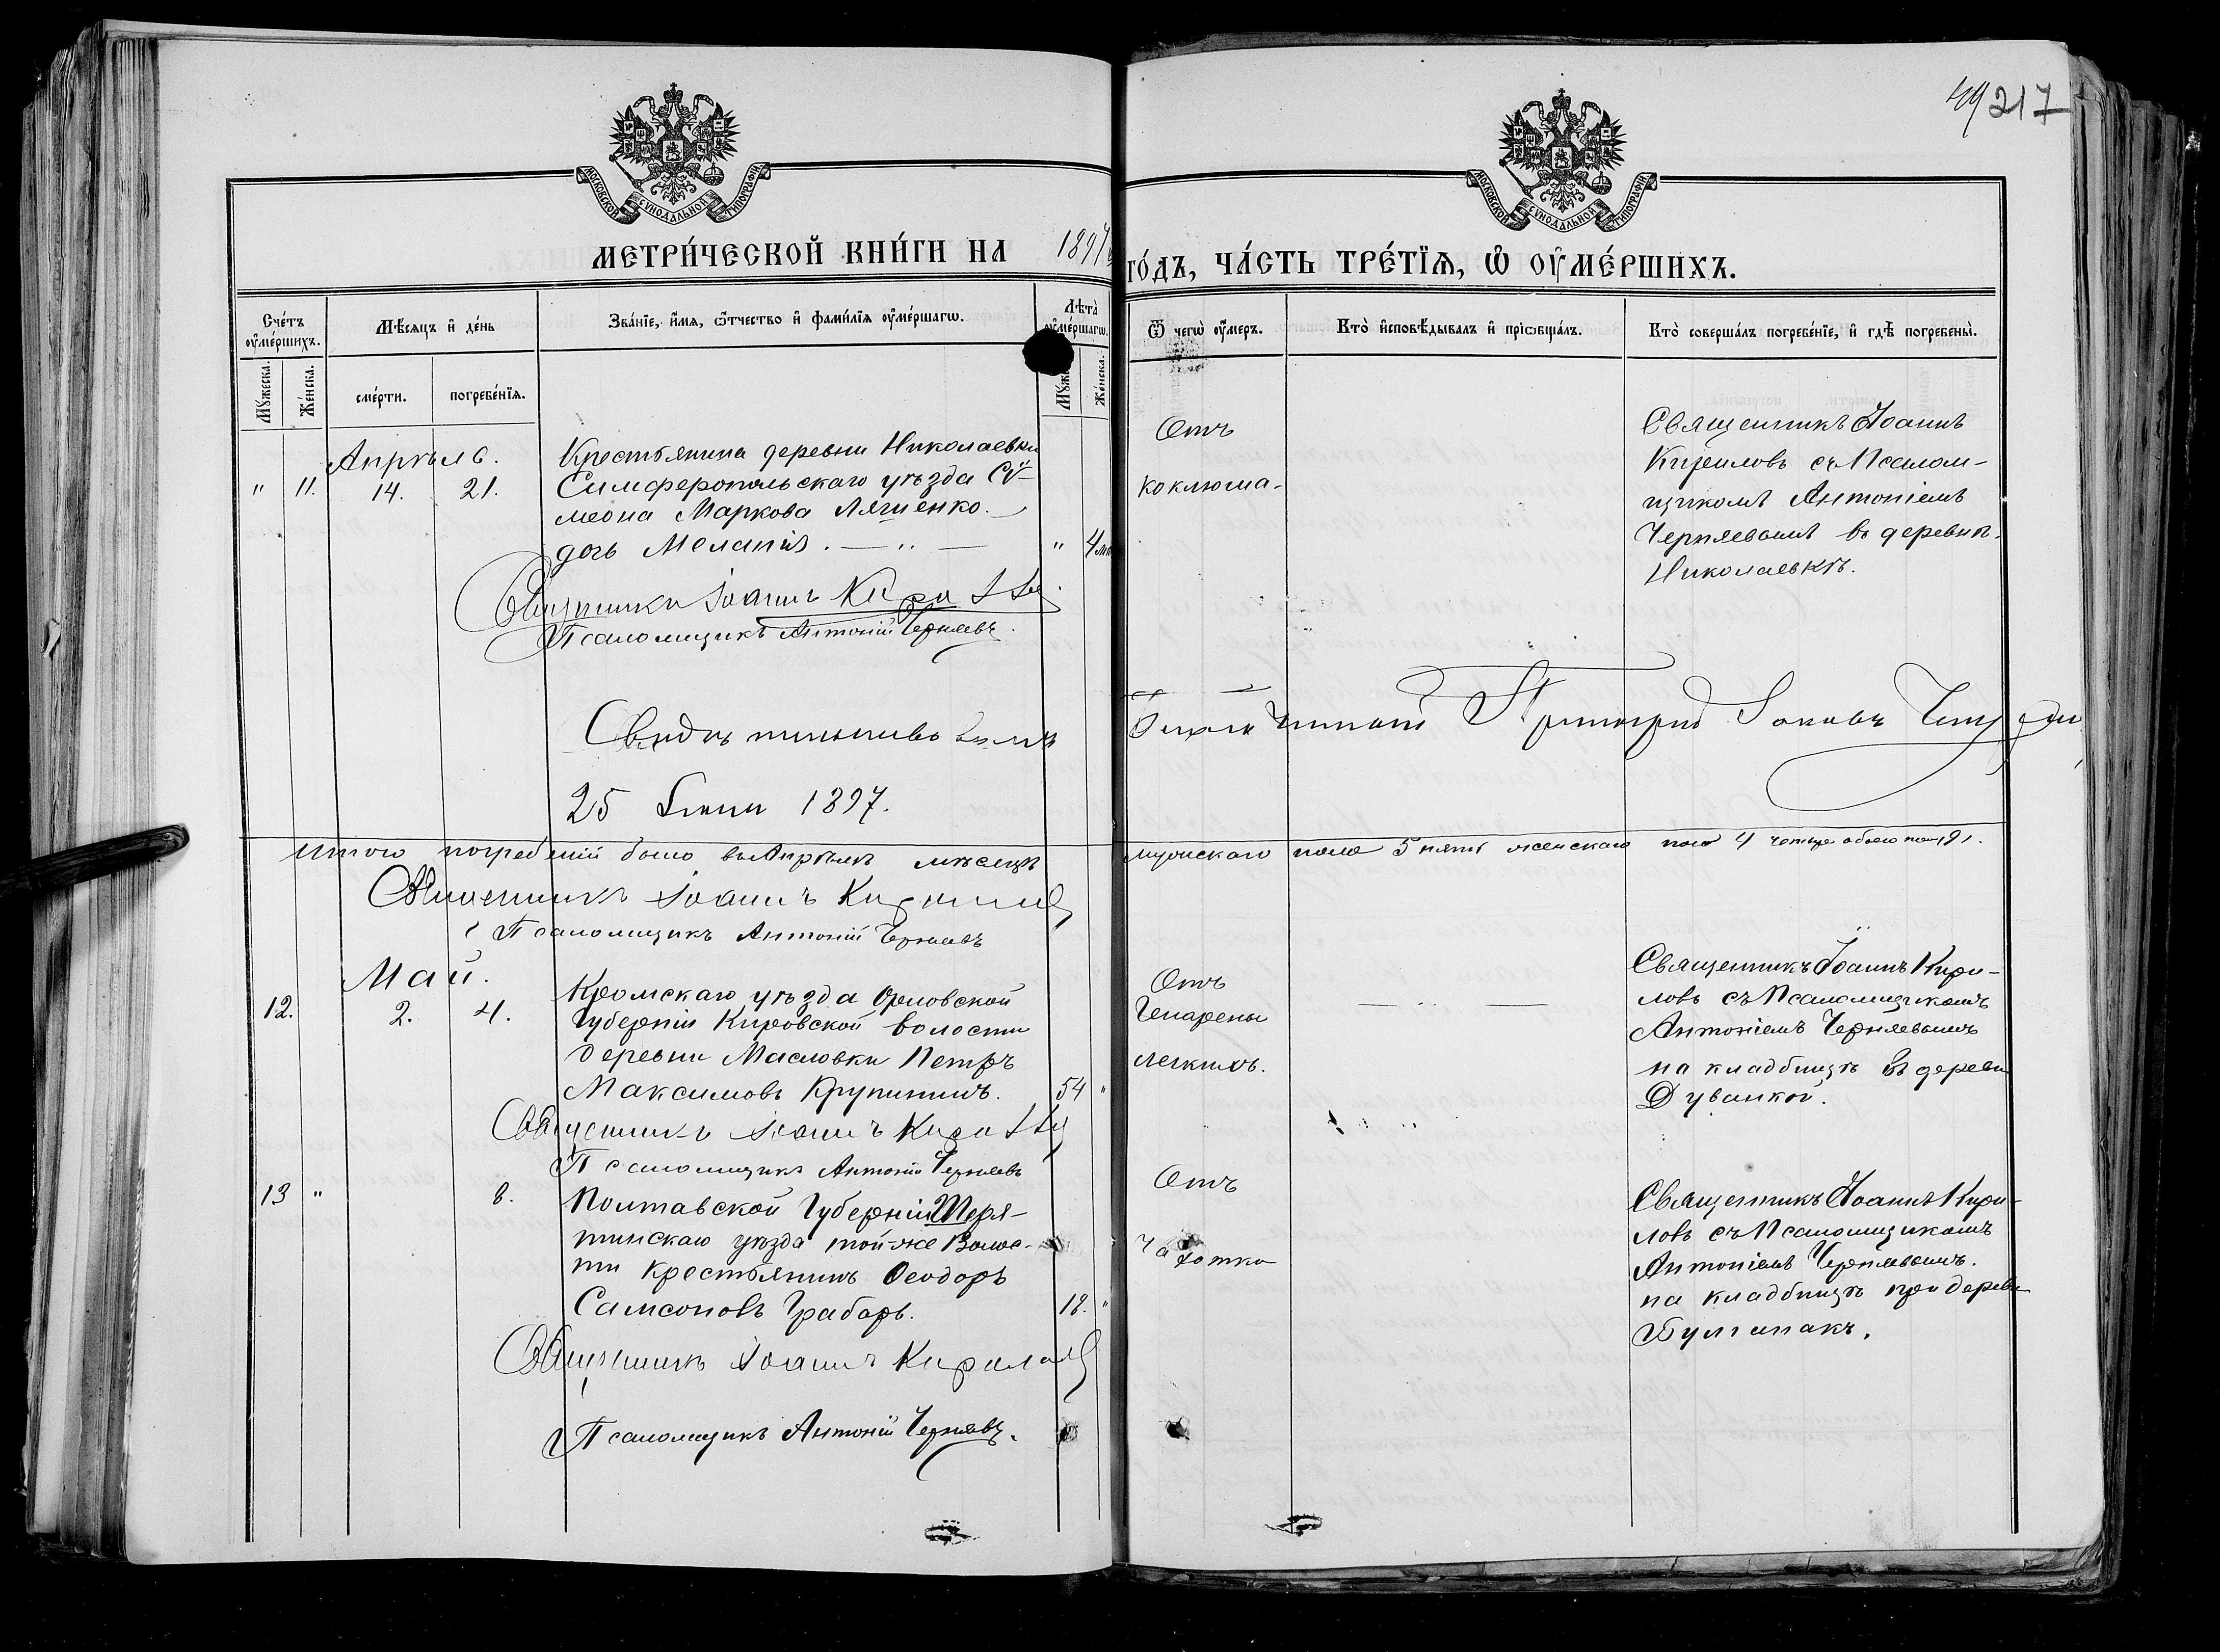 49 217
МОСКОВСКОЙ СУНОДАЛЬНОЙ ТИПОГРАФІИ
МОСКОВСКОЙ СУНОДАЛЬНОЙ ТИПОГРАФІИ
МЕТРИ́ЧЕСКОЙ КНИ́ГИ НА 1897
ГО́ДЪ, ЧА́СТЬ ТРЕ́ТЇѦ, Ѽ ОУ҆МЕ́РШИХЪ.
Сче́тъ оу҆ме́ршихъ.
Мѣ́сяцъ и҆ де́нь
Зва́нїе, и҆́мя, ѻ҆́тчество и҆ фами́лїя оу҆ме́ршагѡ.
Лѣ́та оу҆ме́ршагѡ.
Ѿ чегѡ̀ оу҆́меръ.
Кто̀ и҆сповѣ́дывалъ и҆ прїѡбща́лъ.
Кто̀ соверша́лъ погребе́нїе, и҆ гдѣ̀ погребены̀.
Му́жеска.
Же́нска.
сме́рти.
погребе́нїя.
Же́нска.
Апрѣль.
" 11. 14. 21.
Крестьянина деревни Николаевки
Симферопольскаго уѣзда Сѵ-
меона Маркова Ляшенко.
дочь Меланія. " 4
Отъ
коклюша.
Священникъ Іоаннъ
Кириловъ съ Псалом-
щикомъ Антоніемъ
Черняевымъ въ деревнѣ
Николаевкѣ.
Священникъ Іоаннъ
Псаломщикъ Антоній Черняевъ.
25 1897.
Итого погребеній было въ Апрѣлѣ мѣсяцѣ
мужскаго пола 5 пять женскаго пола 4 обоего 9.
Священникъ Іоаннъ Кириловъ
Псаломщикъ Антоній Черняевъ
Май.
12. 2. 4.
Кромскаго уѣзда Орловской
Губерніи Кировской волости
деревни Масловки Петръ
Максимовъ Крупининъ. 54 "
Отъ
Гангрены
легкихъ.
Священникъ Іоаннъ Кири-
ловъ съ Псаломщикомъ
Антоніемъ Черняевымъ
на кладбищѣ въ деревн
Дуванкой.
Священникъ Іоаннъ
Псаломщикъ Антоній Черняевъ
13 " 8.
Полтавской Губерніи
тинскаго уѣзда той-же Волос-
ти крестьянинъ Ѳеодоръ
Самсоновъ Грабарь. 18. "
Отъ
Чахотки
Священникъ Іоаннъ Кири-
ловъ съ Псаломщикомъ
Антоніемъ Черняевымъ.
на кладбищѣ при дерев
Булганакъ.
Священникъ Іоаннъ Кириловъ
Псаломщикъ Антоній Черняевъ.